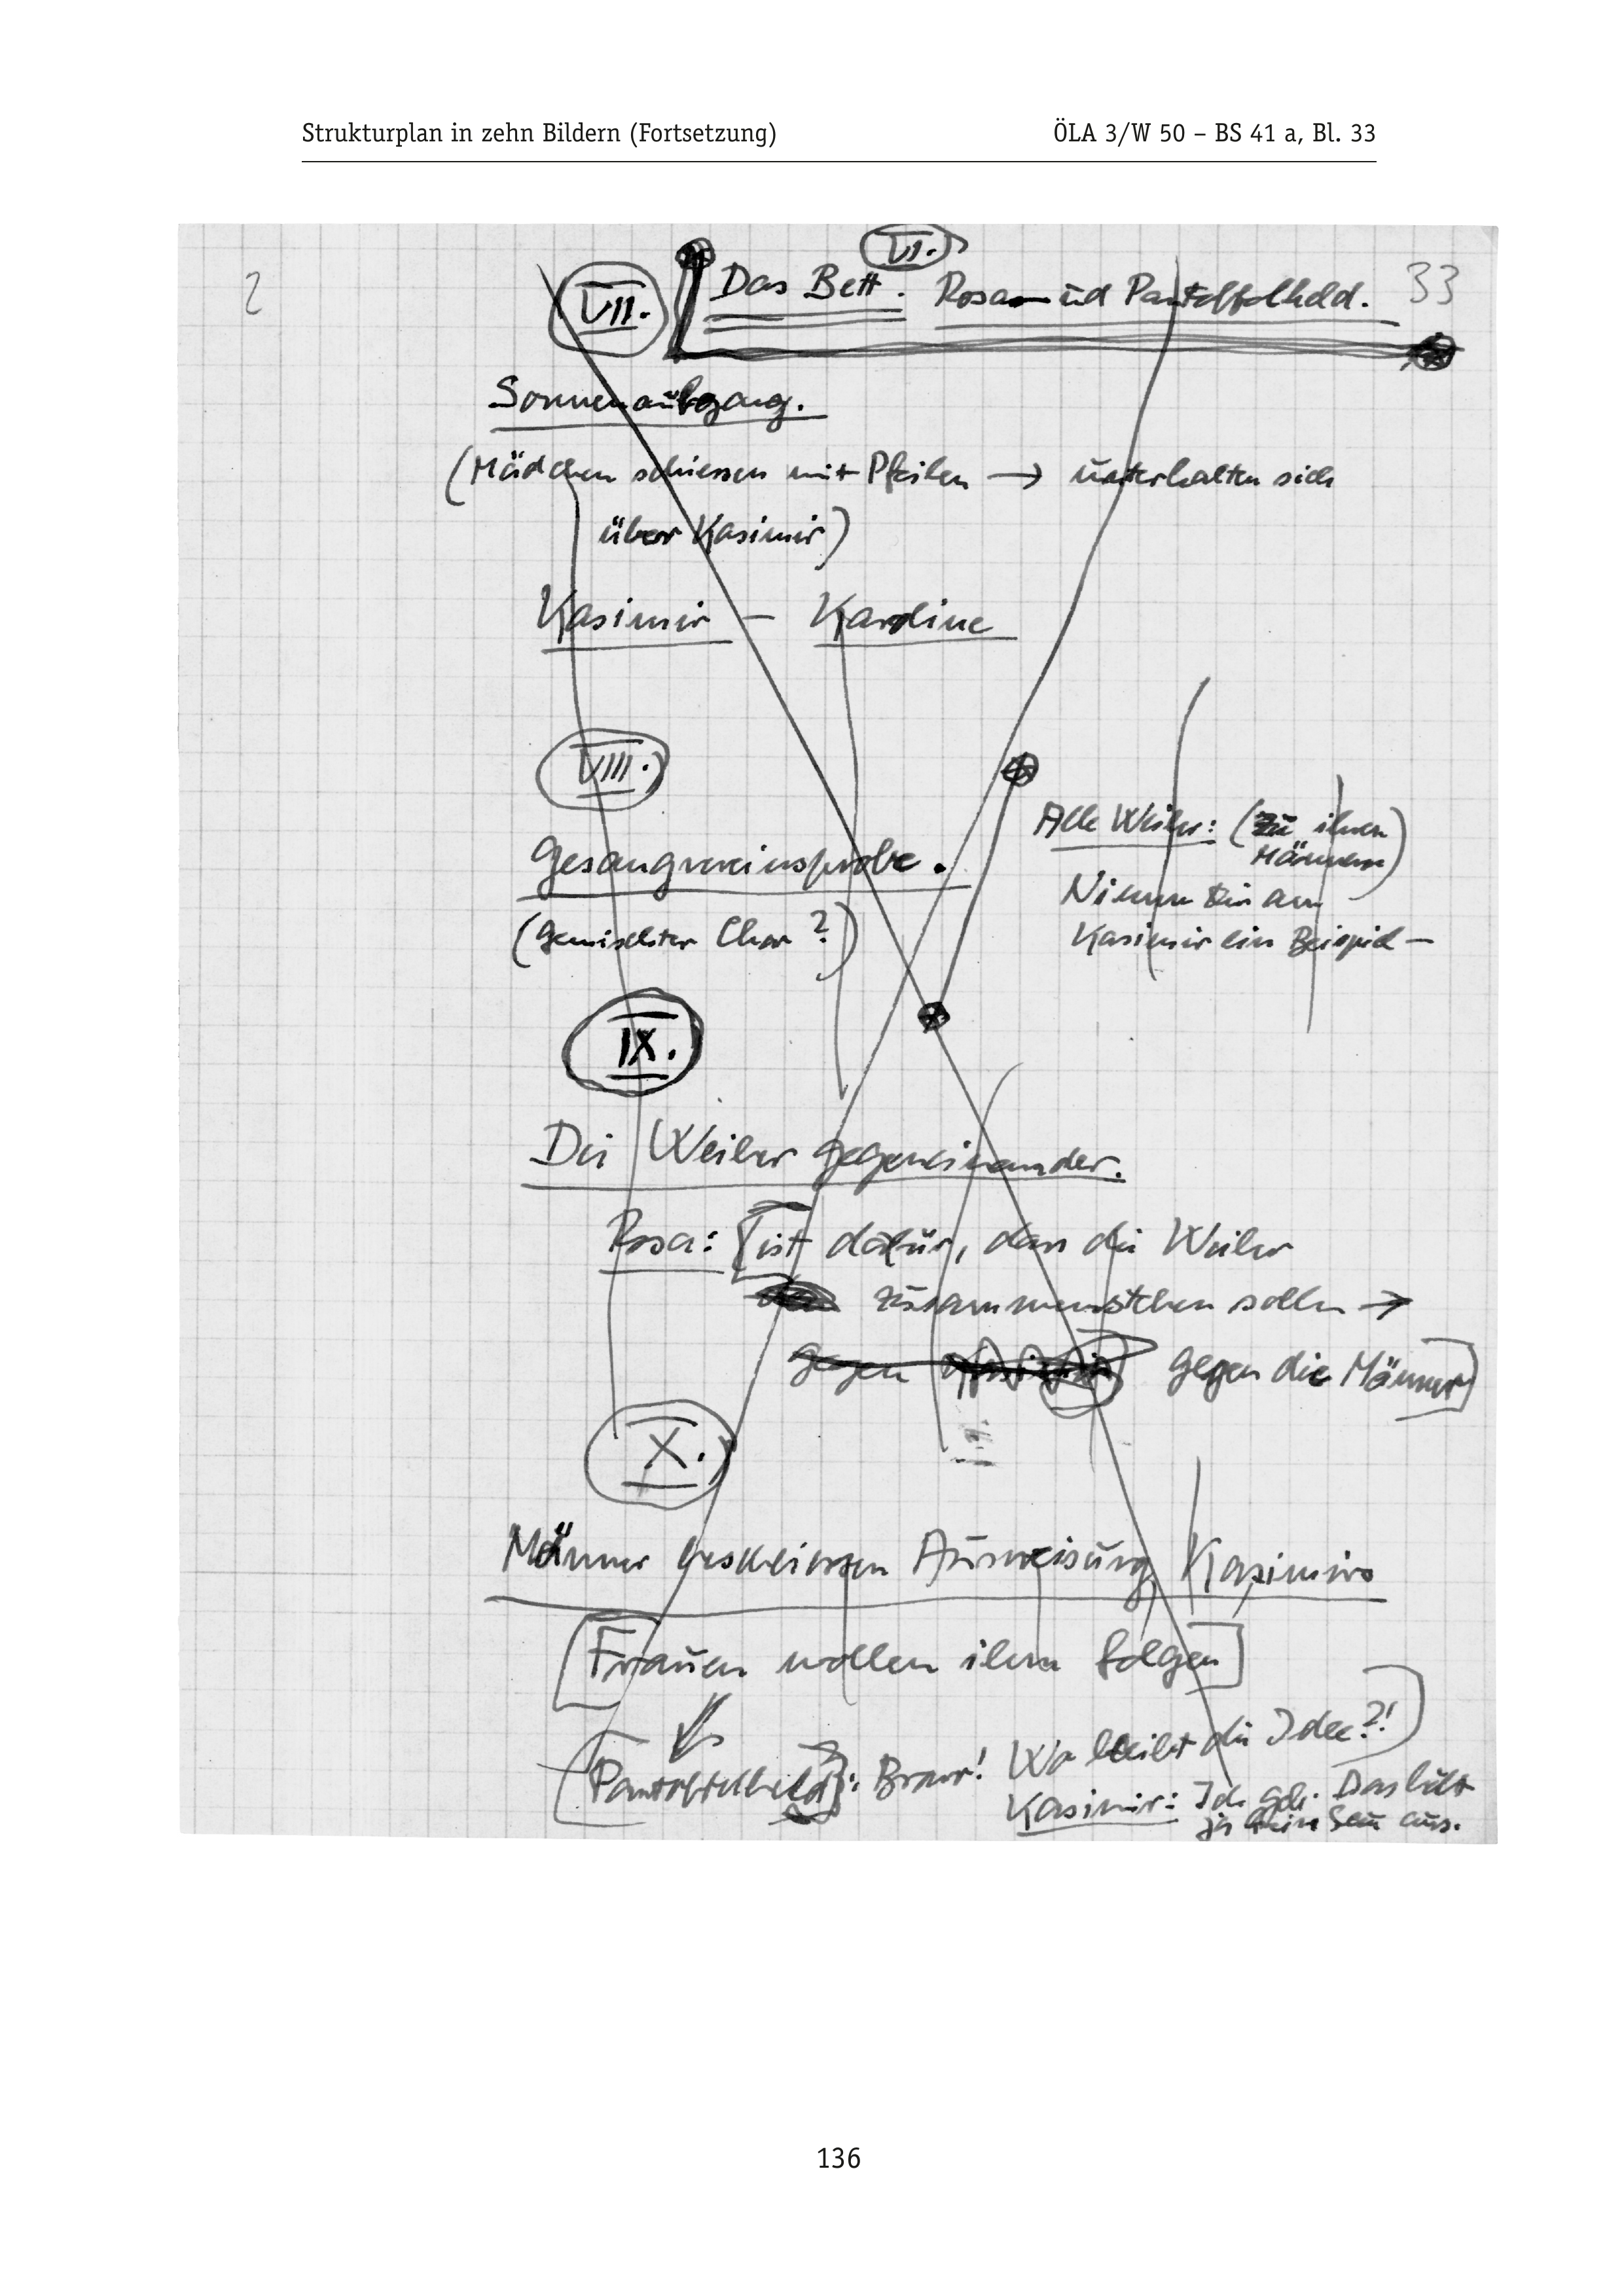 Strukturplan in zehn Bildern (Fortsetzung) ÖLA 3/W 50 – BS 41 a, Bl. 33
VI.
2 VII. Das Bett. Rosa und Pantoffelheld. 33
Sonnenaufgang.
(Mädchen schiessen mit Pfeilen → unterhalten sich
über Kasimir)
Kasimir – Karoline
VIII.
Alle Weiber: (zu ihren
Männern)
Gesangvereinsprobe.
Nimm Dir am
(Gemischter Chor?)
Kasimir ein Beispiel –
IX.
Die Weiber gegeneinander.
Rosa: [ist dafür, dass die Weiber
zusammenstehen sollen →
gegen gegen die Männer]
X.
Männer beschliessen Ausweisung Kasimirs
[Frauen wollen ihm folgen]
(Pantoffelheld): Bravo! Wo bleibt die Idee?!)
Kasimir: Ich geh. Das hält
ja kein Sau aus.
136